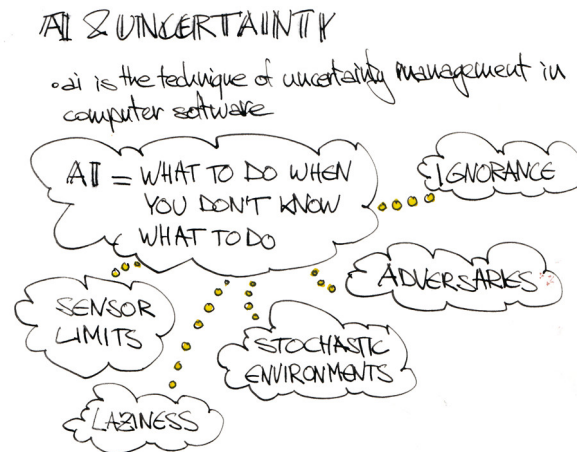 AI & UNCERTAINTY
• ai is the technique of uncertainty management in
computer software
AI = WHAT TO DO WHEN
YOU DON'T KNOW
WHAT TO DO
IGNORANCE
ADVERSARIES
SENSOR
LIMITS
STOCHASTIC
ENVIRONMENTS
LAZINESS